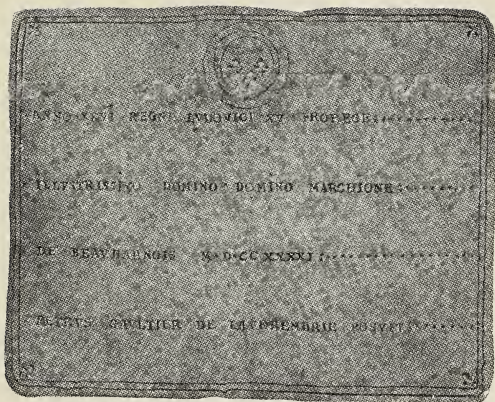 ANNO XXVI REGNI LVDOVICI XV PROREGE
ILLVSTRISSIMO DOMINO DOMINO MARCHIONE
DE BEAVHARNOIS M·D·CC XXXXI
PETRVS GAVLTIER DE LAVERENDRIE POSVIT